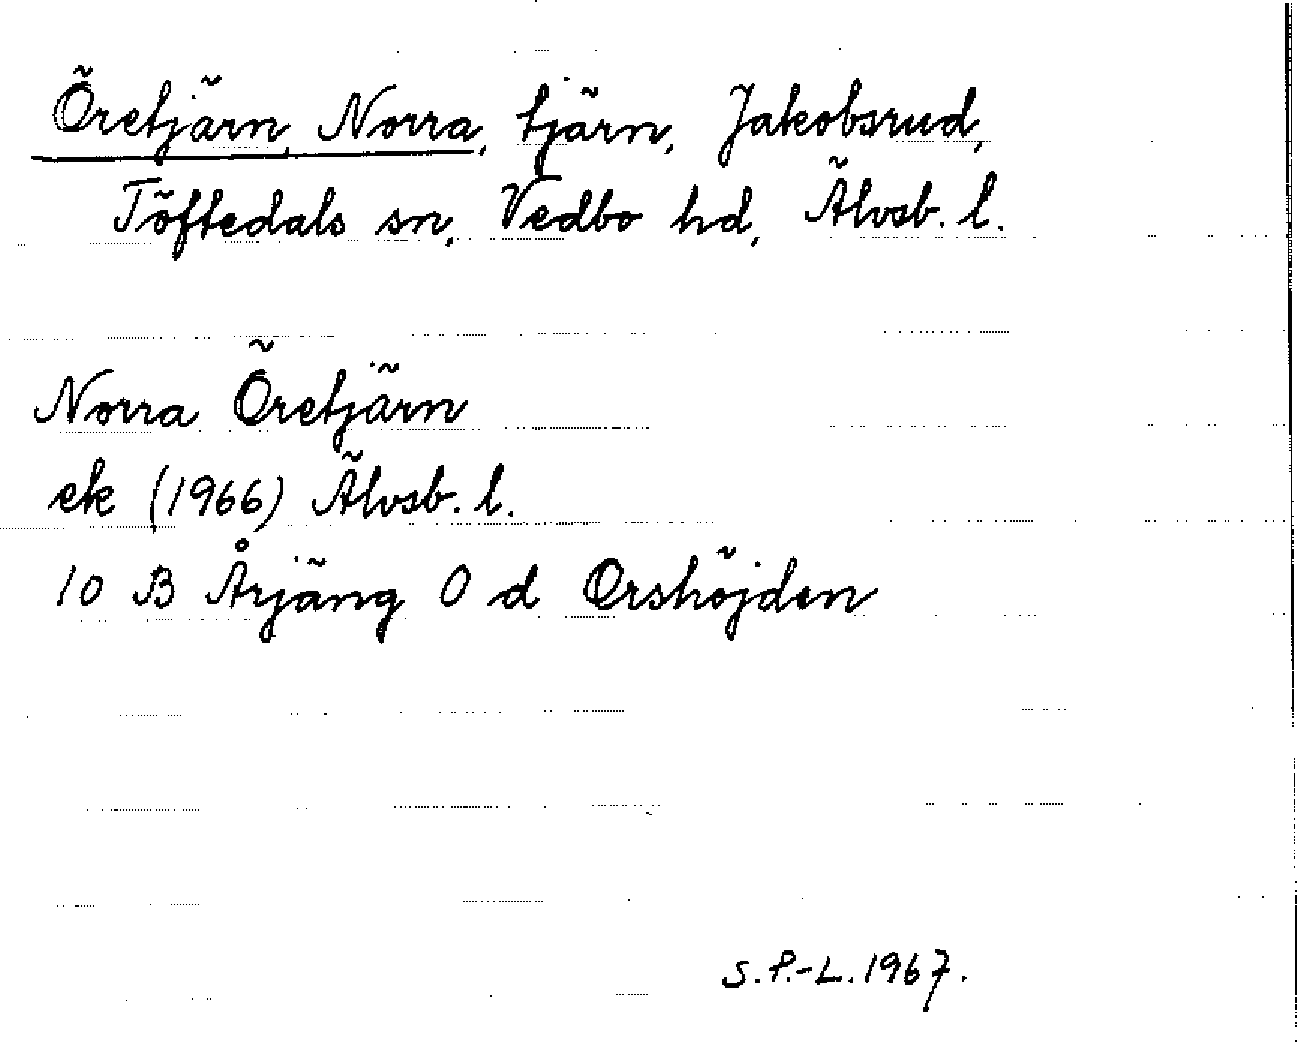 Öretjärn, Norra, tjärn, Jakobsrud,
Töftedals sn, Vedbo hd, Älvsb. l.
Norra Öretjärn
ek (1966) Älvsb. l.
10 B Årjäng 0 d Orshöjden
S. P.-L. 1967.